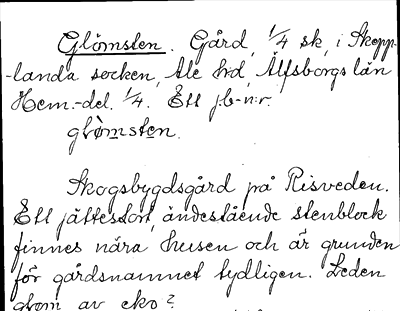 Glömsten. Gård, 1/4 sk, i Skepp-
-landa socken, Ale hrd, Älfsborgs län
Hem.-del. 1/4. Ett jb-n:r.
glòmsten.
Skogsbygdsgård på Risveden.
Ett jättestort, ändestående stenblock
finnes nära husen och är grunden
för gårdsnamnet tydligen. Leden
glom av eko?